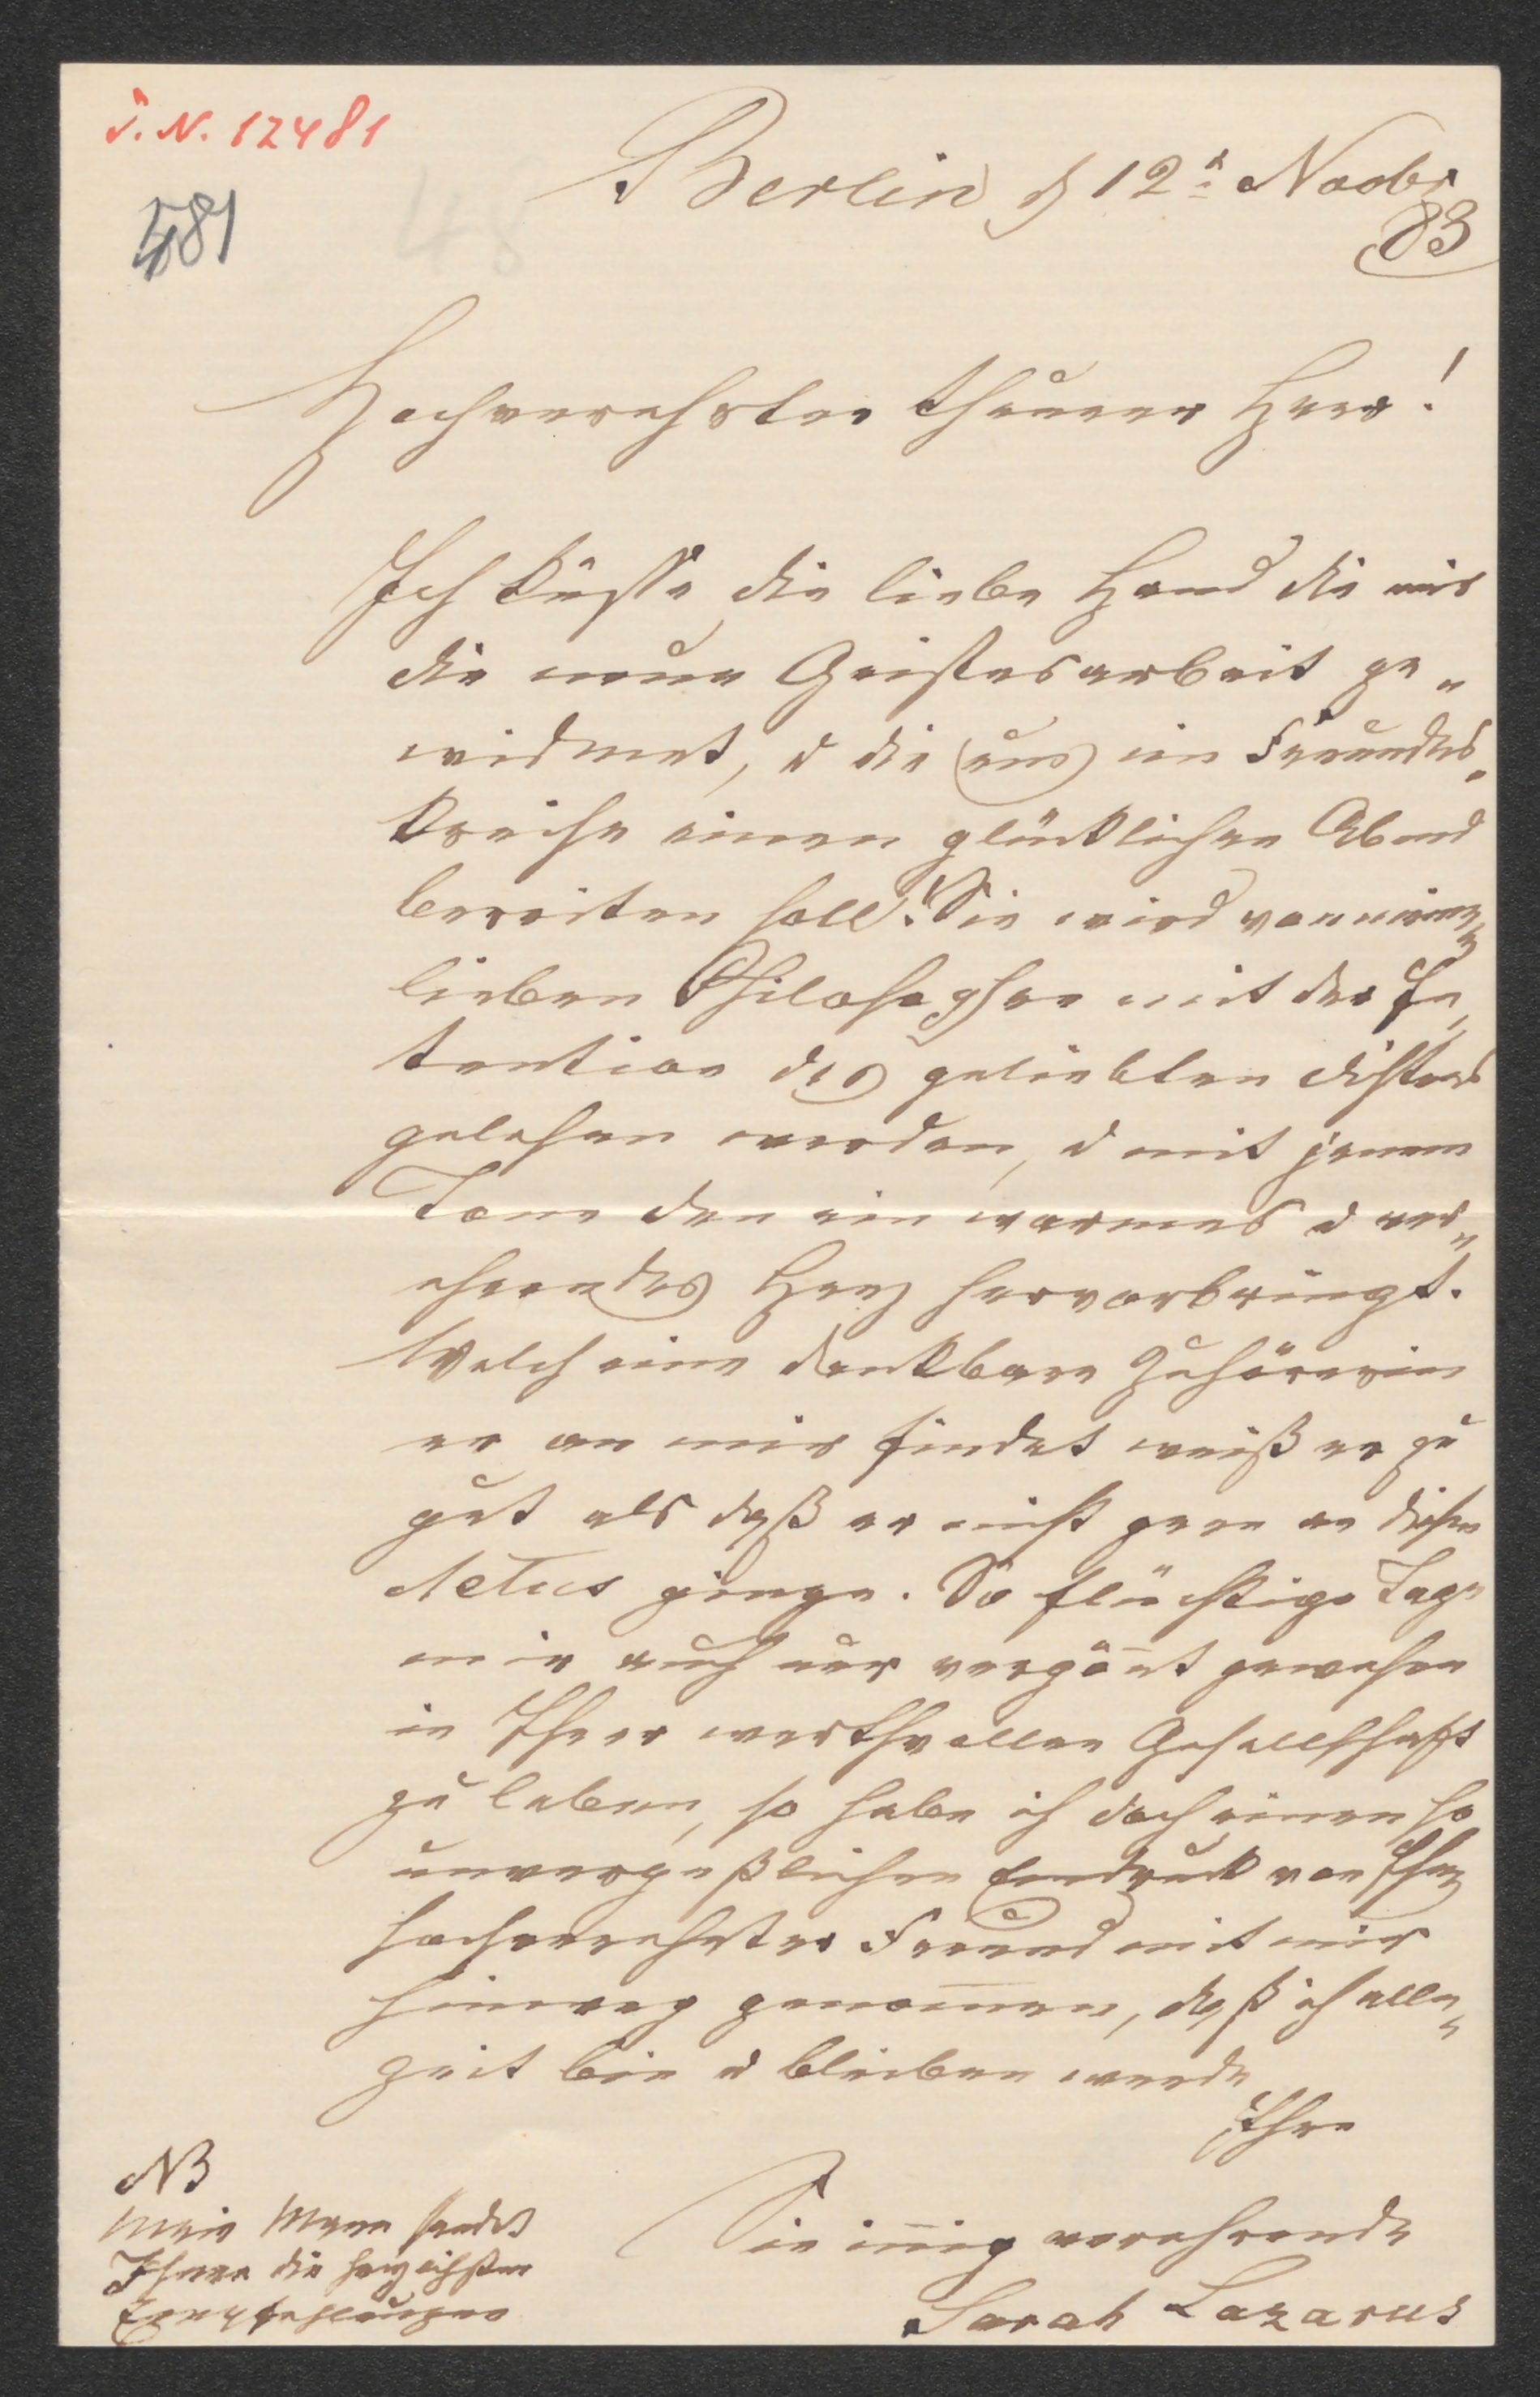 J. N. 12481
481
48
Berlin d 12t Novbr
83
Hochverehrter theurer Herr!
Ich küsse die liebe Hand die mir
die neue Geistesarbeit ge„
widmet, u die uns im Freundes„
kreise einen glücklichen Abend
bereiten soll. Sie wird von meinem
lieben Philosophen mit der In„
tention des geliebten Dichters
gelesen werden, u mit jenem
Tone den ein warmes u ver„
ehrendes Herz hervorbringt.
Welch eine dankbare Zuhörerin
er an mir findet weiß er zu
gut als daß er nicht gern an diesen
Actus ginge. So flüchtige Tage
mir auch nur vergönt gewesen
in Ihrer werthvollen Gesellschaft
zu leben, so habe ich doch einen so
unvergeßlichen Eindruck von Ihnen
hochverehrter Freund mit mir
hinweg genomen, daß ich alle„
zeit bin u bleiben werde
Ihre
Sie inig verehrende
Sarah Lazarus
NB
Mein Mann sendet
Ihnen die herzlichsten
Empfehlungen